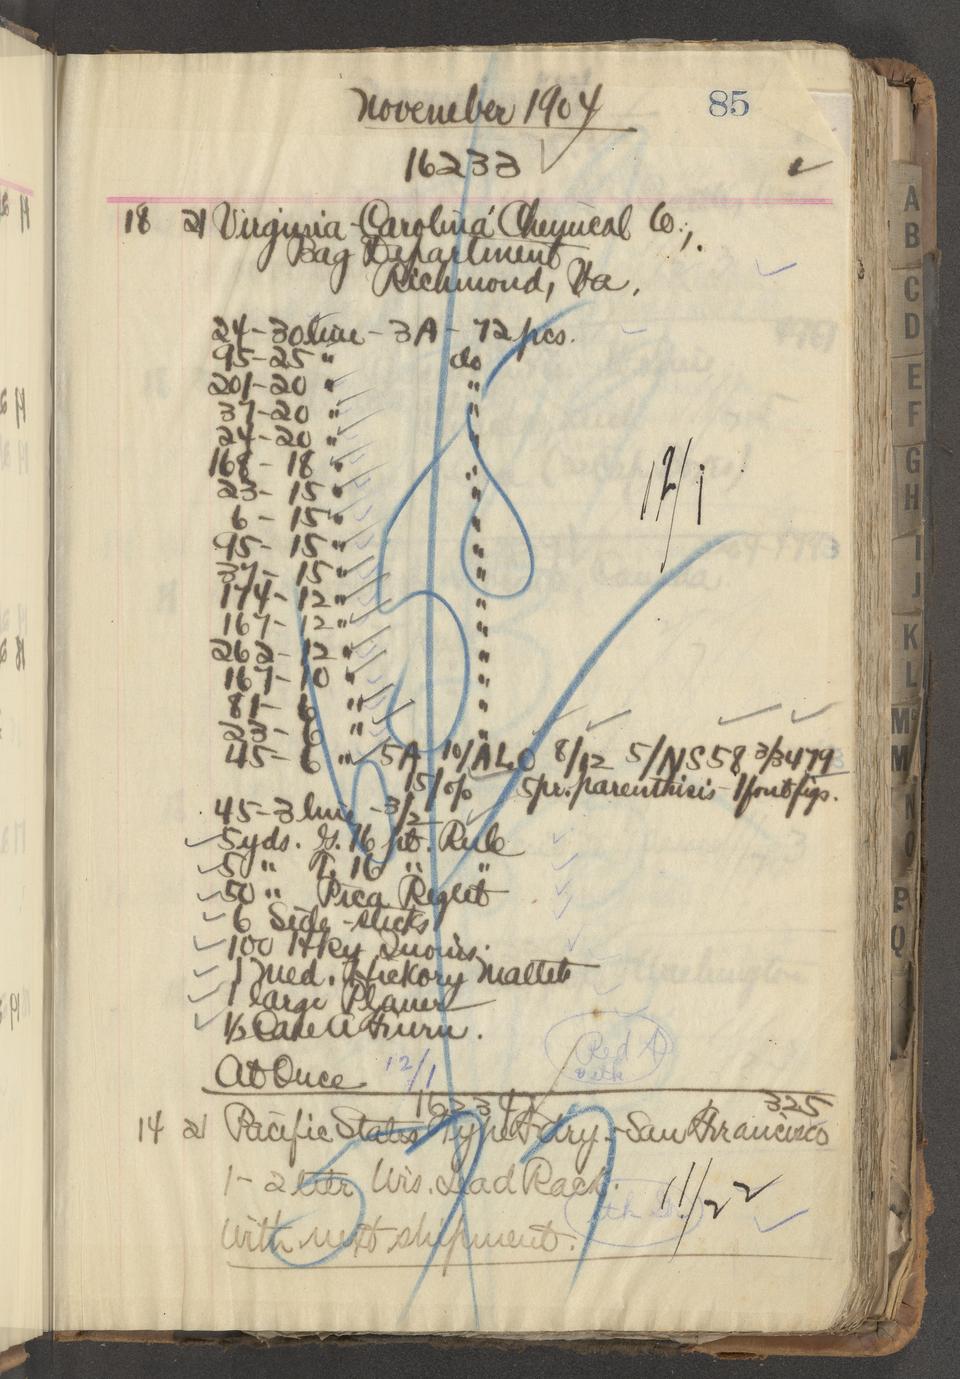 November 1904 85
16233
18 21 Virginia-Carolina Chemical Co.,
Bag Department
Richmond, Va.
24-30 line-3A-72 pcs.
95-25 " do
201-20 " "
37-20 " "
24-20 " "
168-18 " "
23-15 " "
6-15 " "
95-15 " "
37-15 " "
174-12 " "
167-12 " "
262-12 " "
167-10 " "
81-6 " "
23-6 " "
45-6 " 5A 10/ALO 8/12 5/NS58 3/3479
15/op 5 pr. parenthisis-1 font figs.
45-3 line-3/2
5 yds. G. 16 pt. Rule
5 " T. 16 " "
50 " Pica Reglet
6 Side-sticks
100 Hky Quoins.
1 Med. Hickory Mallet
1 large Planer
1/3 Case
At Once 12/1
12/1
Red A
16234 325
14 21 Pacific States Type Fdry.-San Francisco
1-2 Wis. Lead Rack. 11/22
With next shipment.
A
B
C
D
E
F
G
H
I
J
K
L
Mc
M
N
O
P
Q